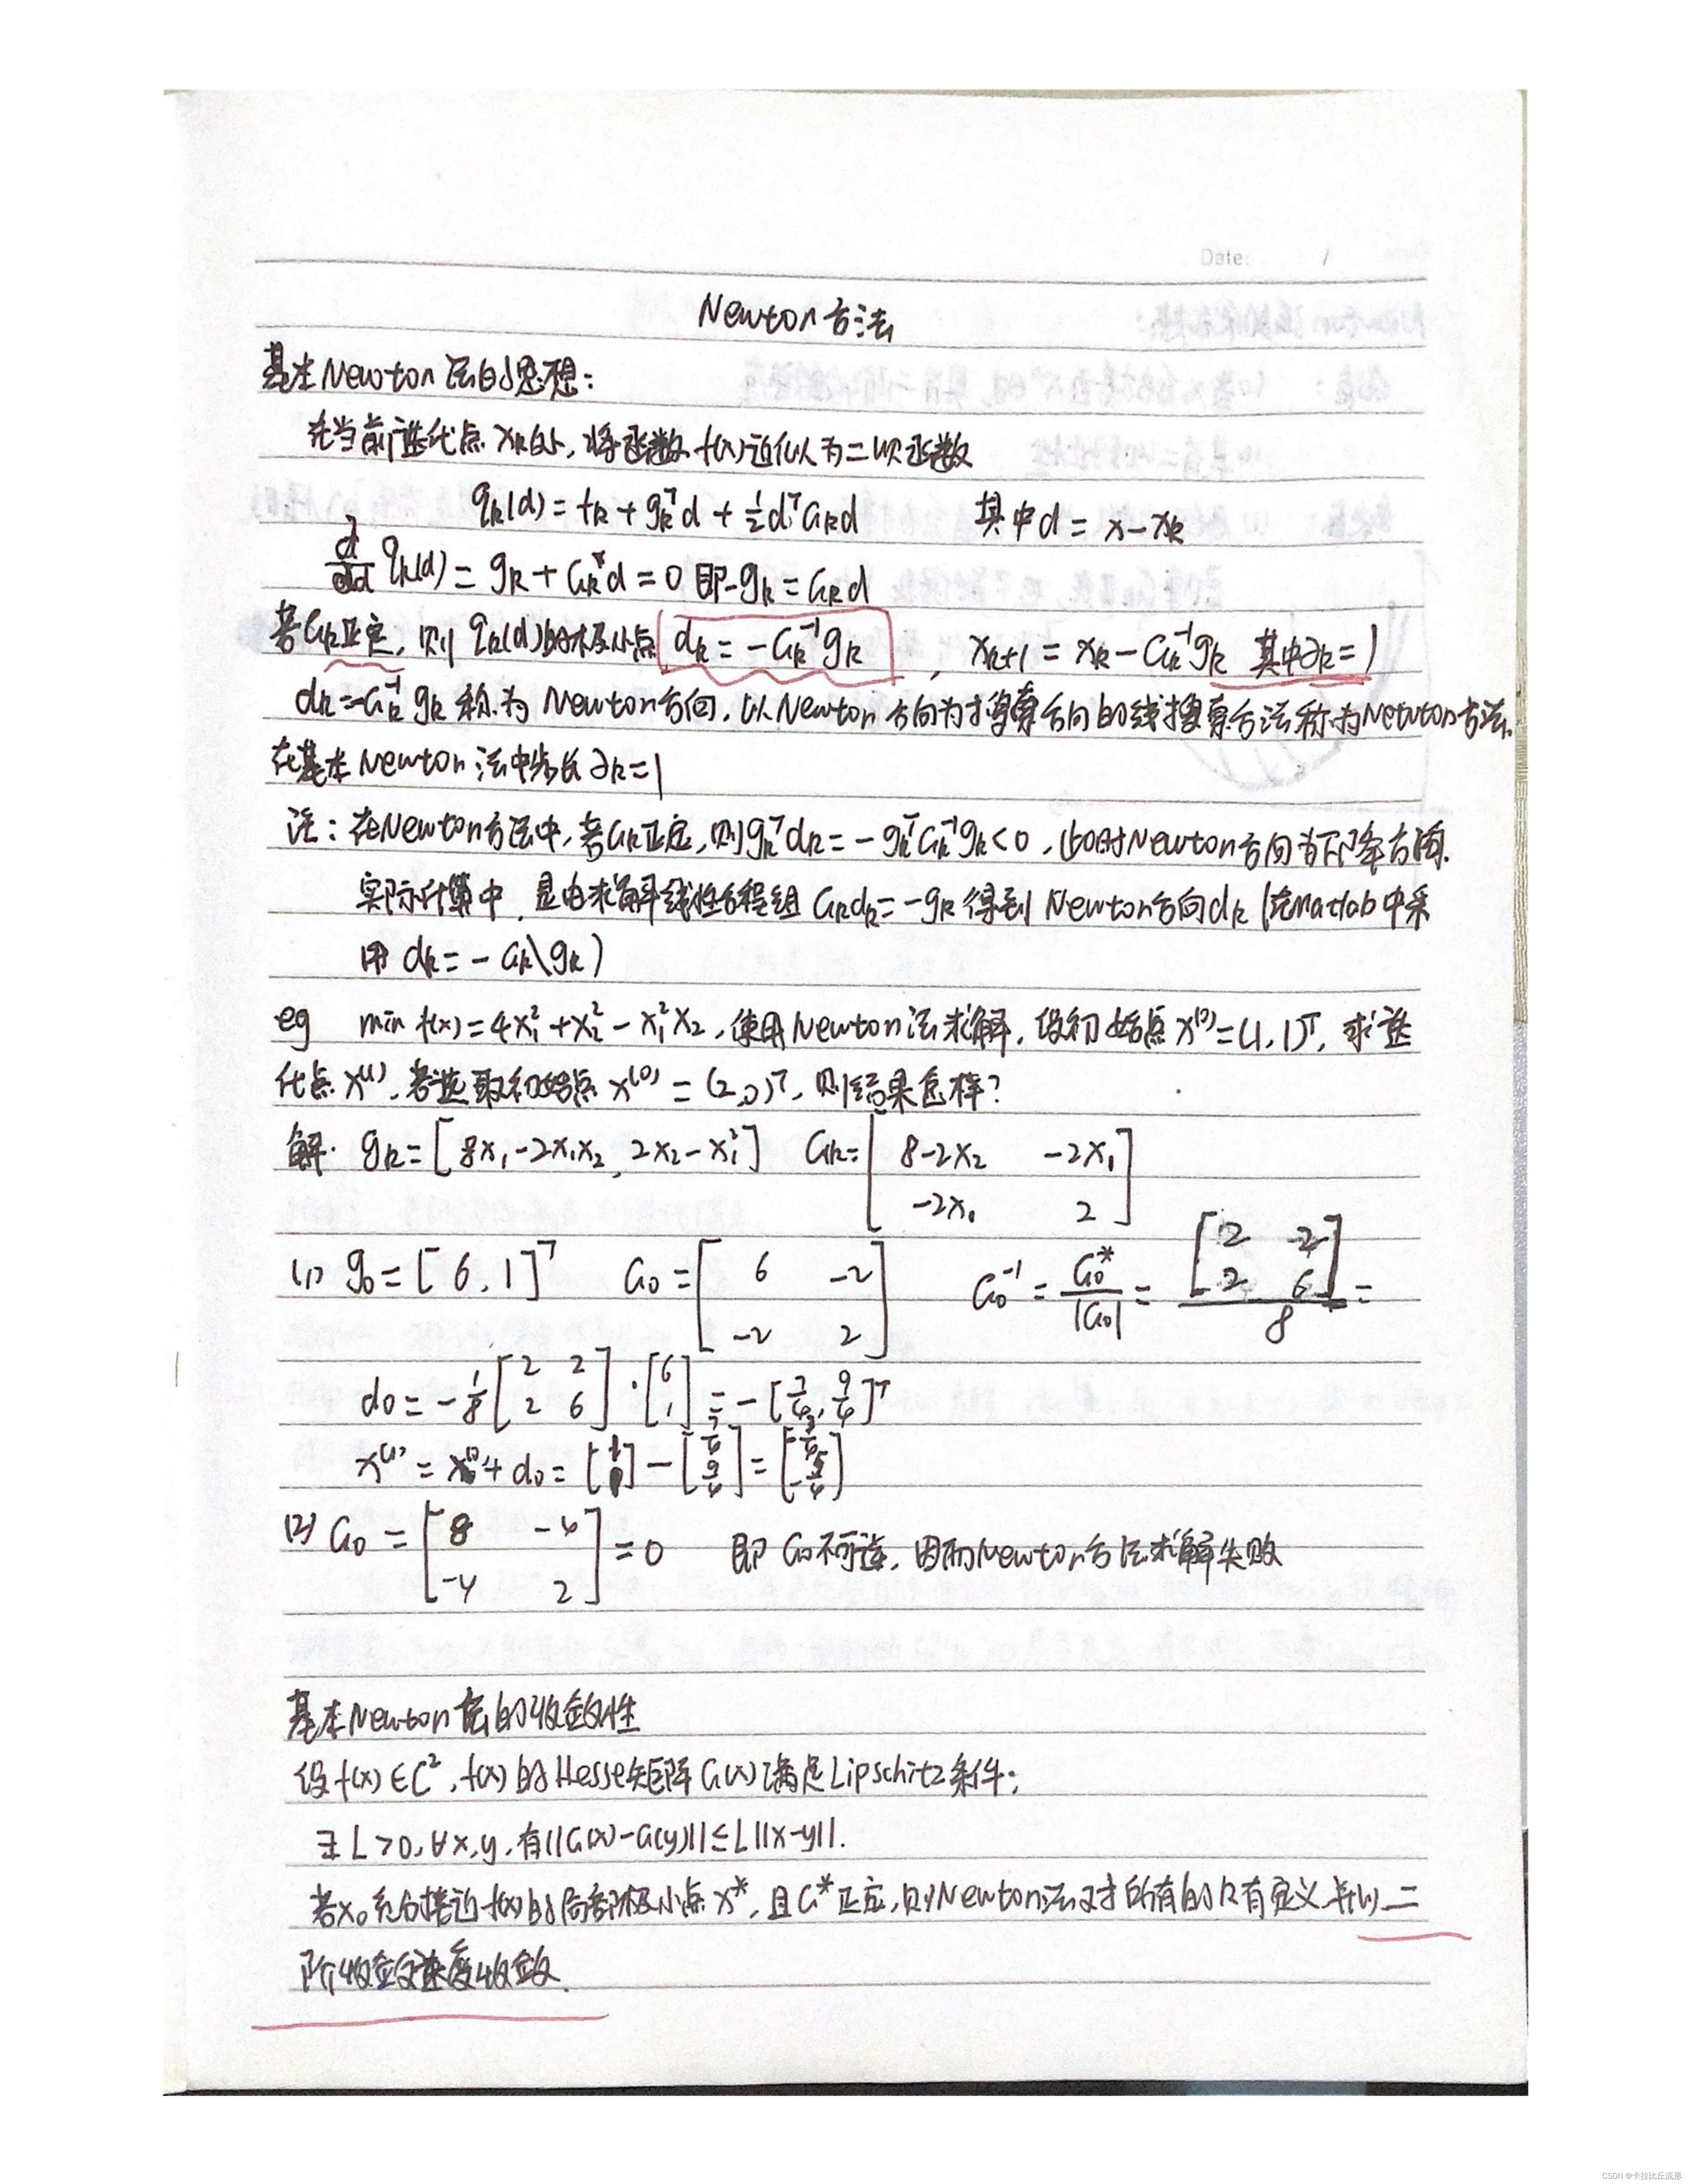 Date: /
Newton方法
基本Newton法的思想:
在当前迭代点xk处,将函数f(x)近似为二次函数
qk(d)=fk+gkᵀd+½dᵀGkd 其中d=x-xk
d/dd qk(d)=gk+Gkd=0 即-gk=Gkd
若Gk正定,则qk(d)的极小点 dk=-Gk⁻¹gk , xk+1=xk-Gk⁻¹gk 其中∂k=1
dk=-Gk⁻¹gk称为Newton方向,以Newton方向为搜索方向的线搜索方法称为Newton方法.
在基本Newton法中步长∂k=1
注:在Newton方法中,若Gk正定,则gkᵀdk=-gkᵀGk⁻¹gk<0,此时Newton方向为下降方向.
实际计算中,是由求解线性方程组Gkdk=-gk得到Newton方向dk(在Matlab中采
用dk=-Gk\gk)
eg min f(x)=4x₁²+x₂²-x₁²x₂,使用Newton法求解,设初始点x⁽⁰⁾=(1,1)ᵀ,求迭
代点x⁽¹⁾,若选取初始点x⁽⁰⁾=(2,0)ᵀ,则结果怎样?
解. gk=[8x₁-2x₁x₂, 2x₂-x₁²] Gk=[8-2x₂ -2x₁
-2x₁ 2]
(1) g₀=[6,1]ᵀ G₀=[6 -2
-2 2] G₀⁻¹=G₀*/|G₀|=[2 2
2 6]/8=
d₀=-⅛[2 2
2 6]·[6
1]=-[7/4, 9/4]ᵀ
x⁽¹⁾=x⁽⁰⁾+d₀=[1
1]-[7/4
9/4]=[-3/4
-5/4]
(2) G₀=[8 -4
-4 2]=0 即G₀不可逆,因而Newton方法求解失败
基本Newton法的收敛性
设f(x)∈C²,f(x)的Hesse矩阵G(x)满足Lipschitz条件;
∃L>0,∀x,y,有||G(x)-G(y)||≤L||x-y||.
若x₀充分接近f(x)的局部极小点x*,且G*正定,则Newton法对所有的k有定义,并以二
阶收敛速度收敛.
CSDN @卡拉比丘流形